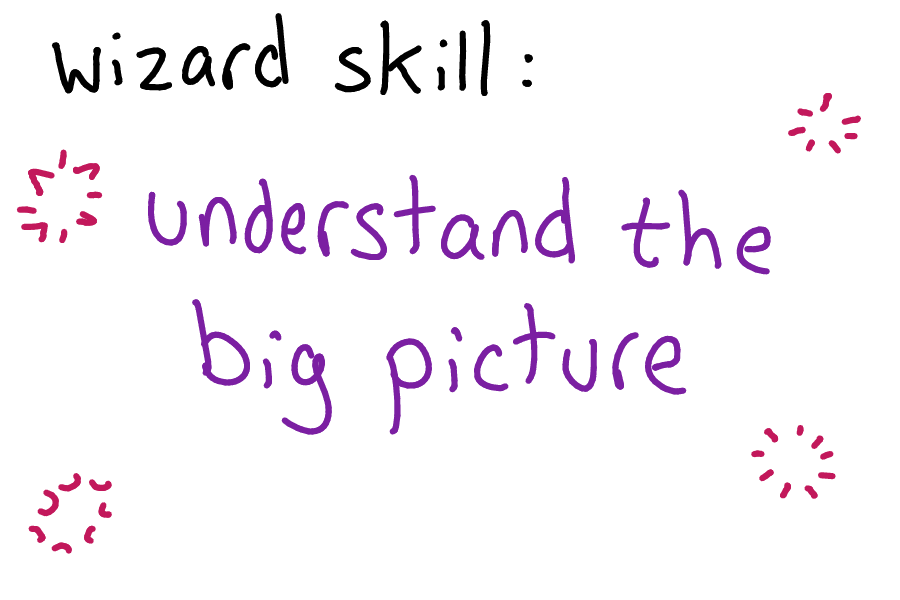 wizard skill:
understand the
big picture